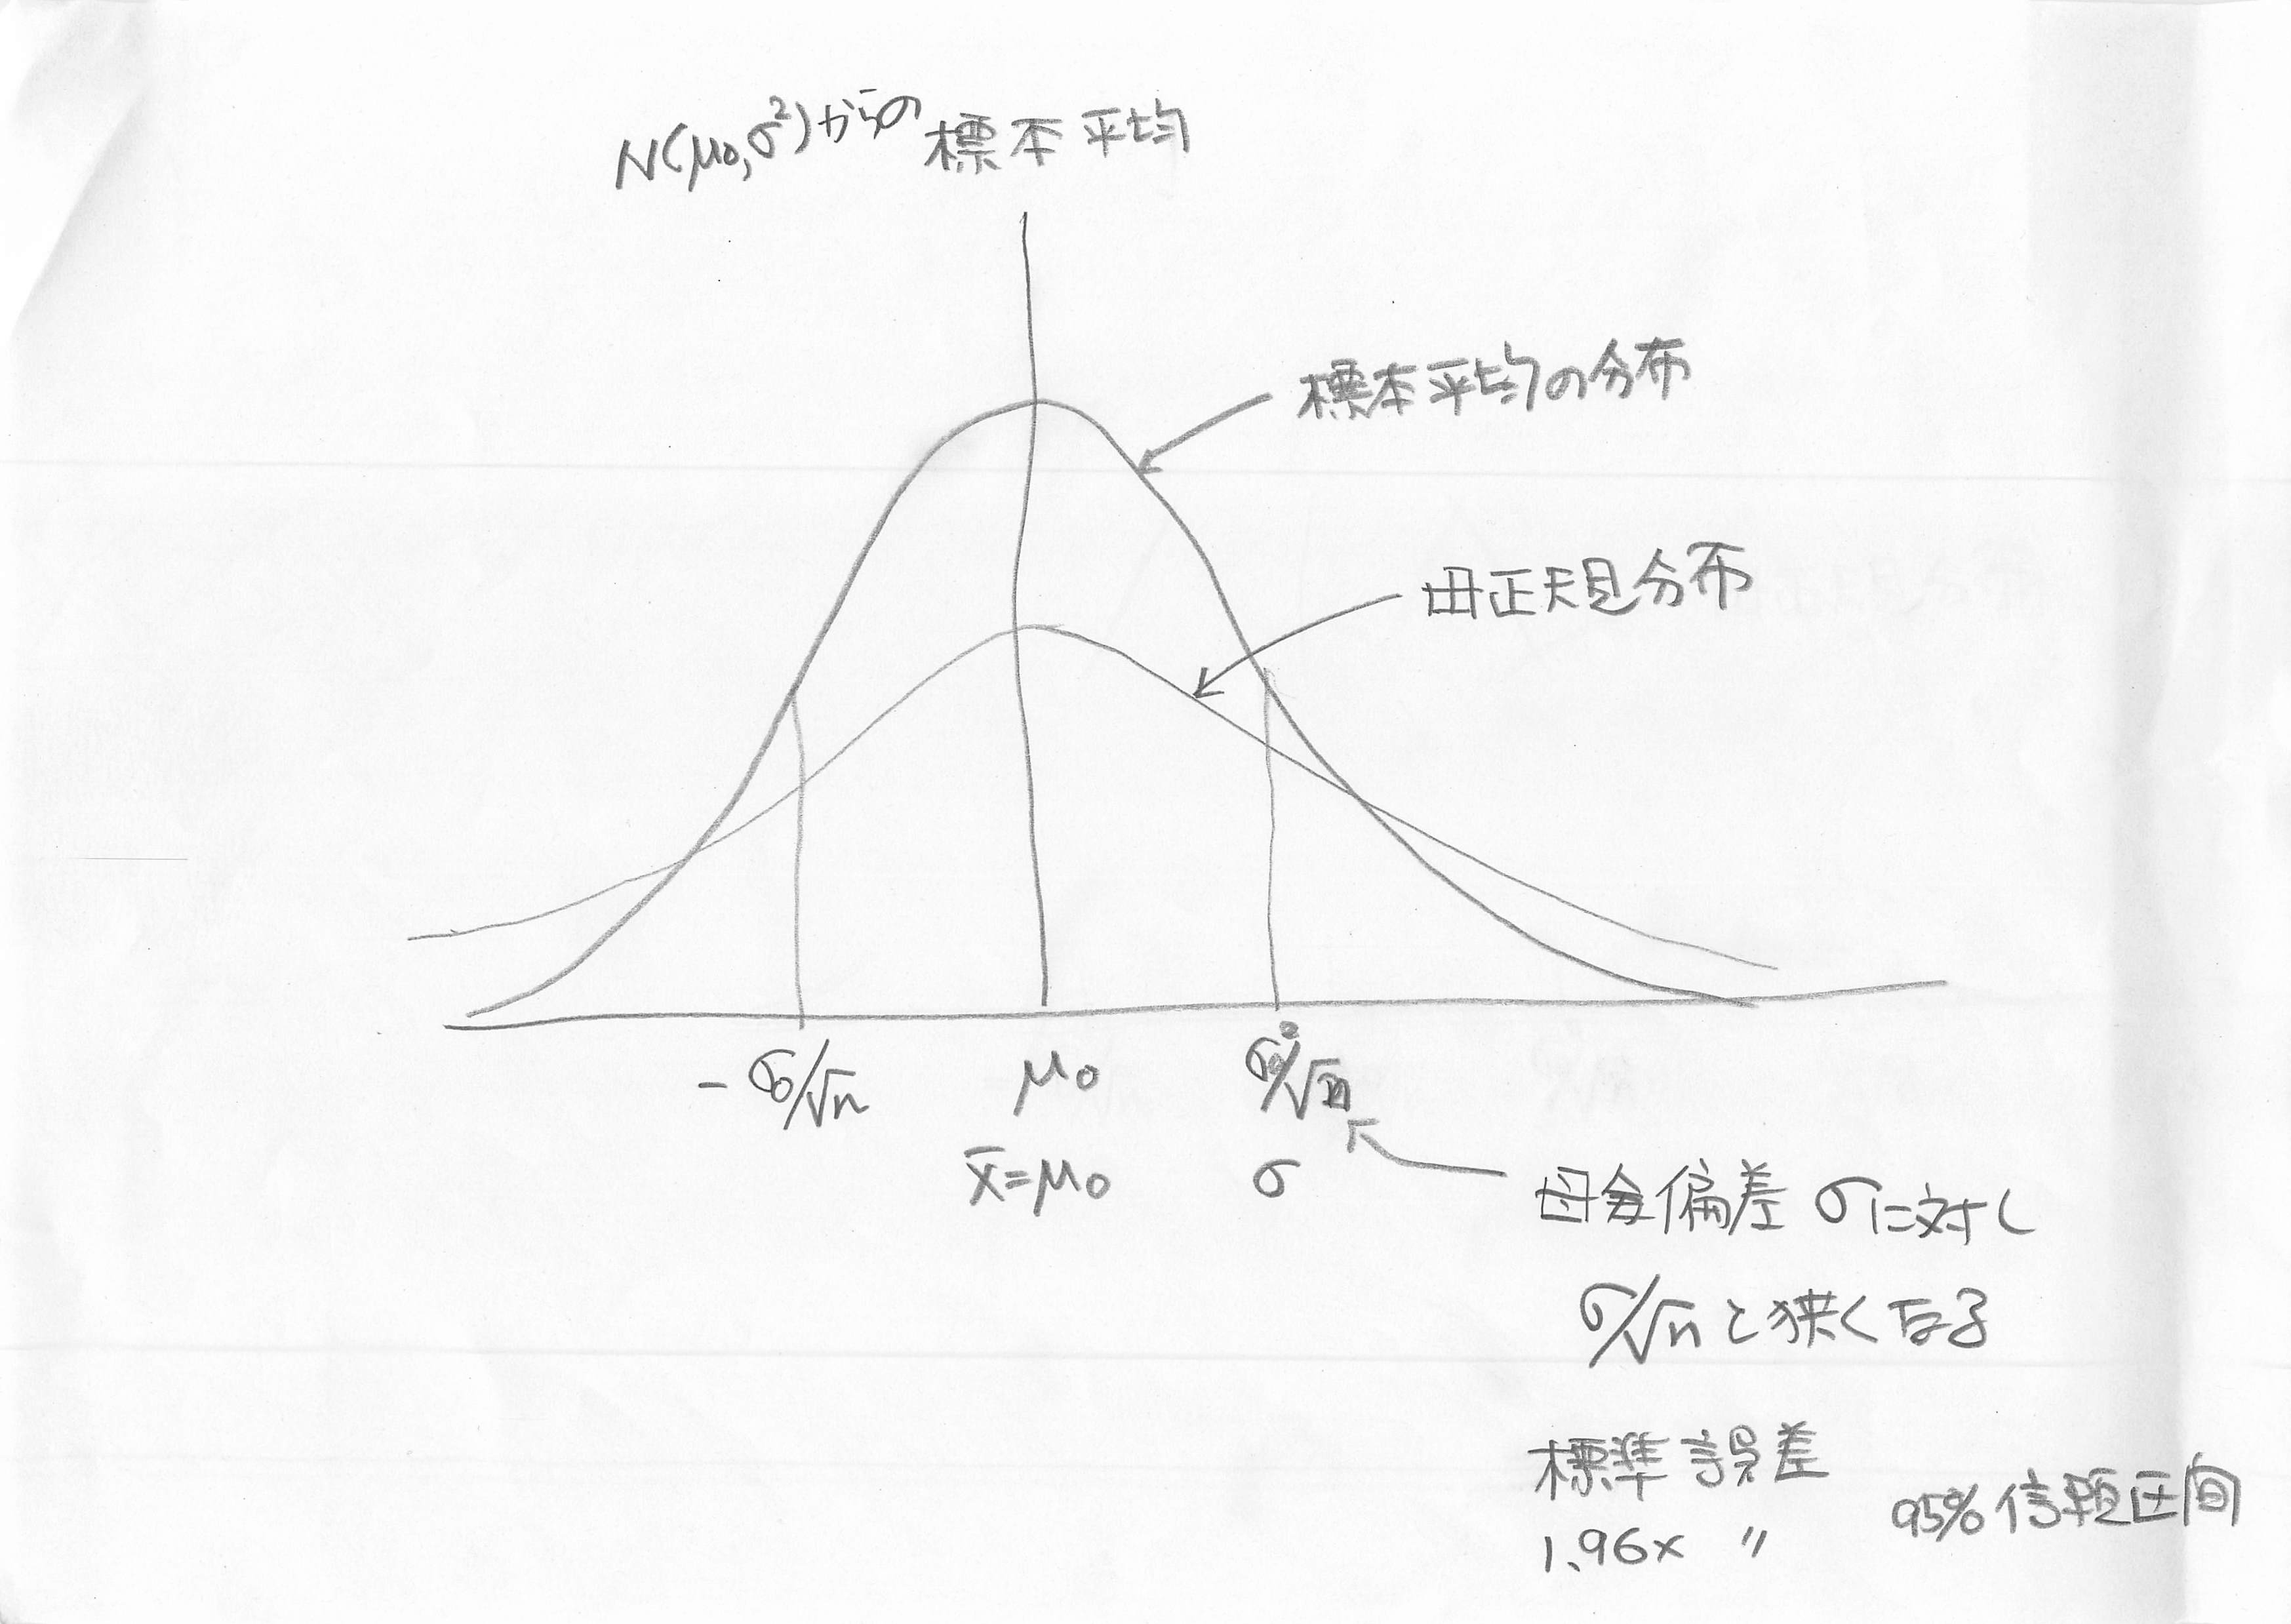 N(μ0,σ²)からの標本平均
標本平均の分布
母正規分布
- σ0/√n
μ0
σ²/√n
x̄=μ0
σ
母会偏差 σに対し
σ/√nと狭くなる
標準誤差
1.96× 〃
95%信頼区間